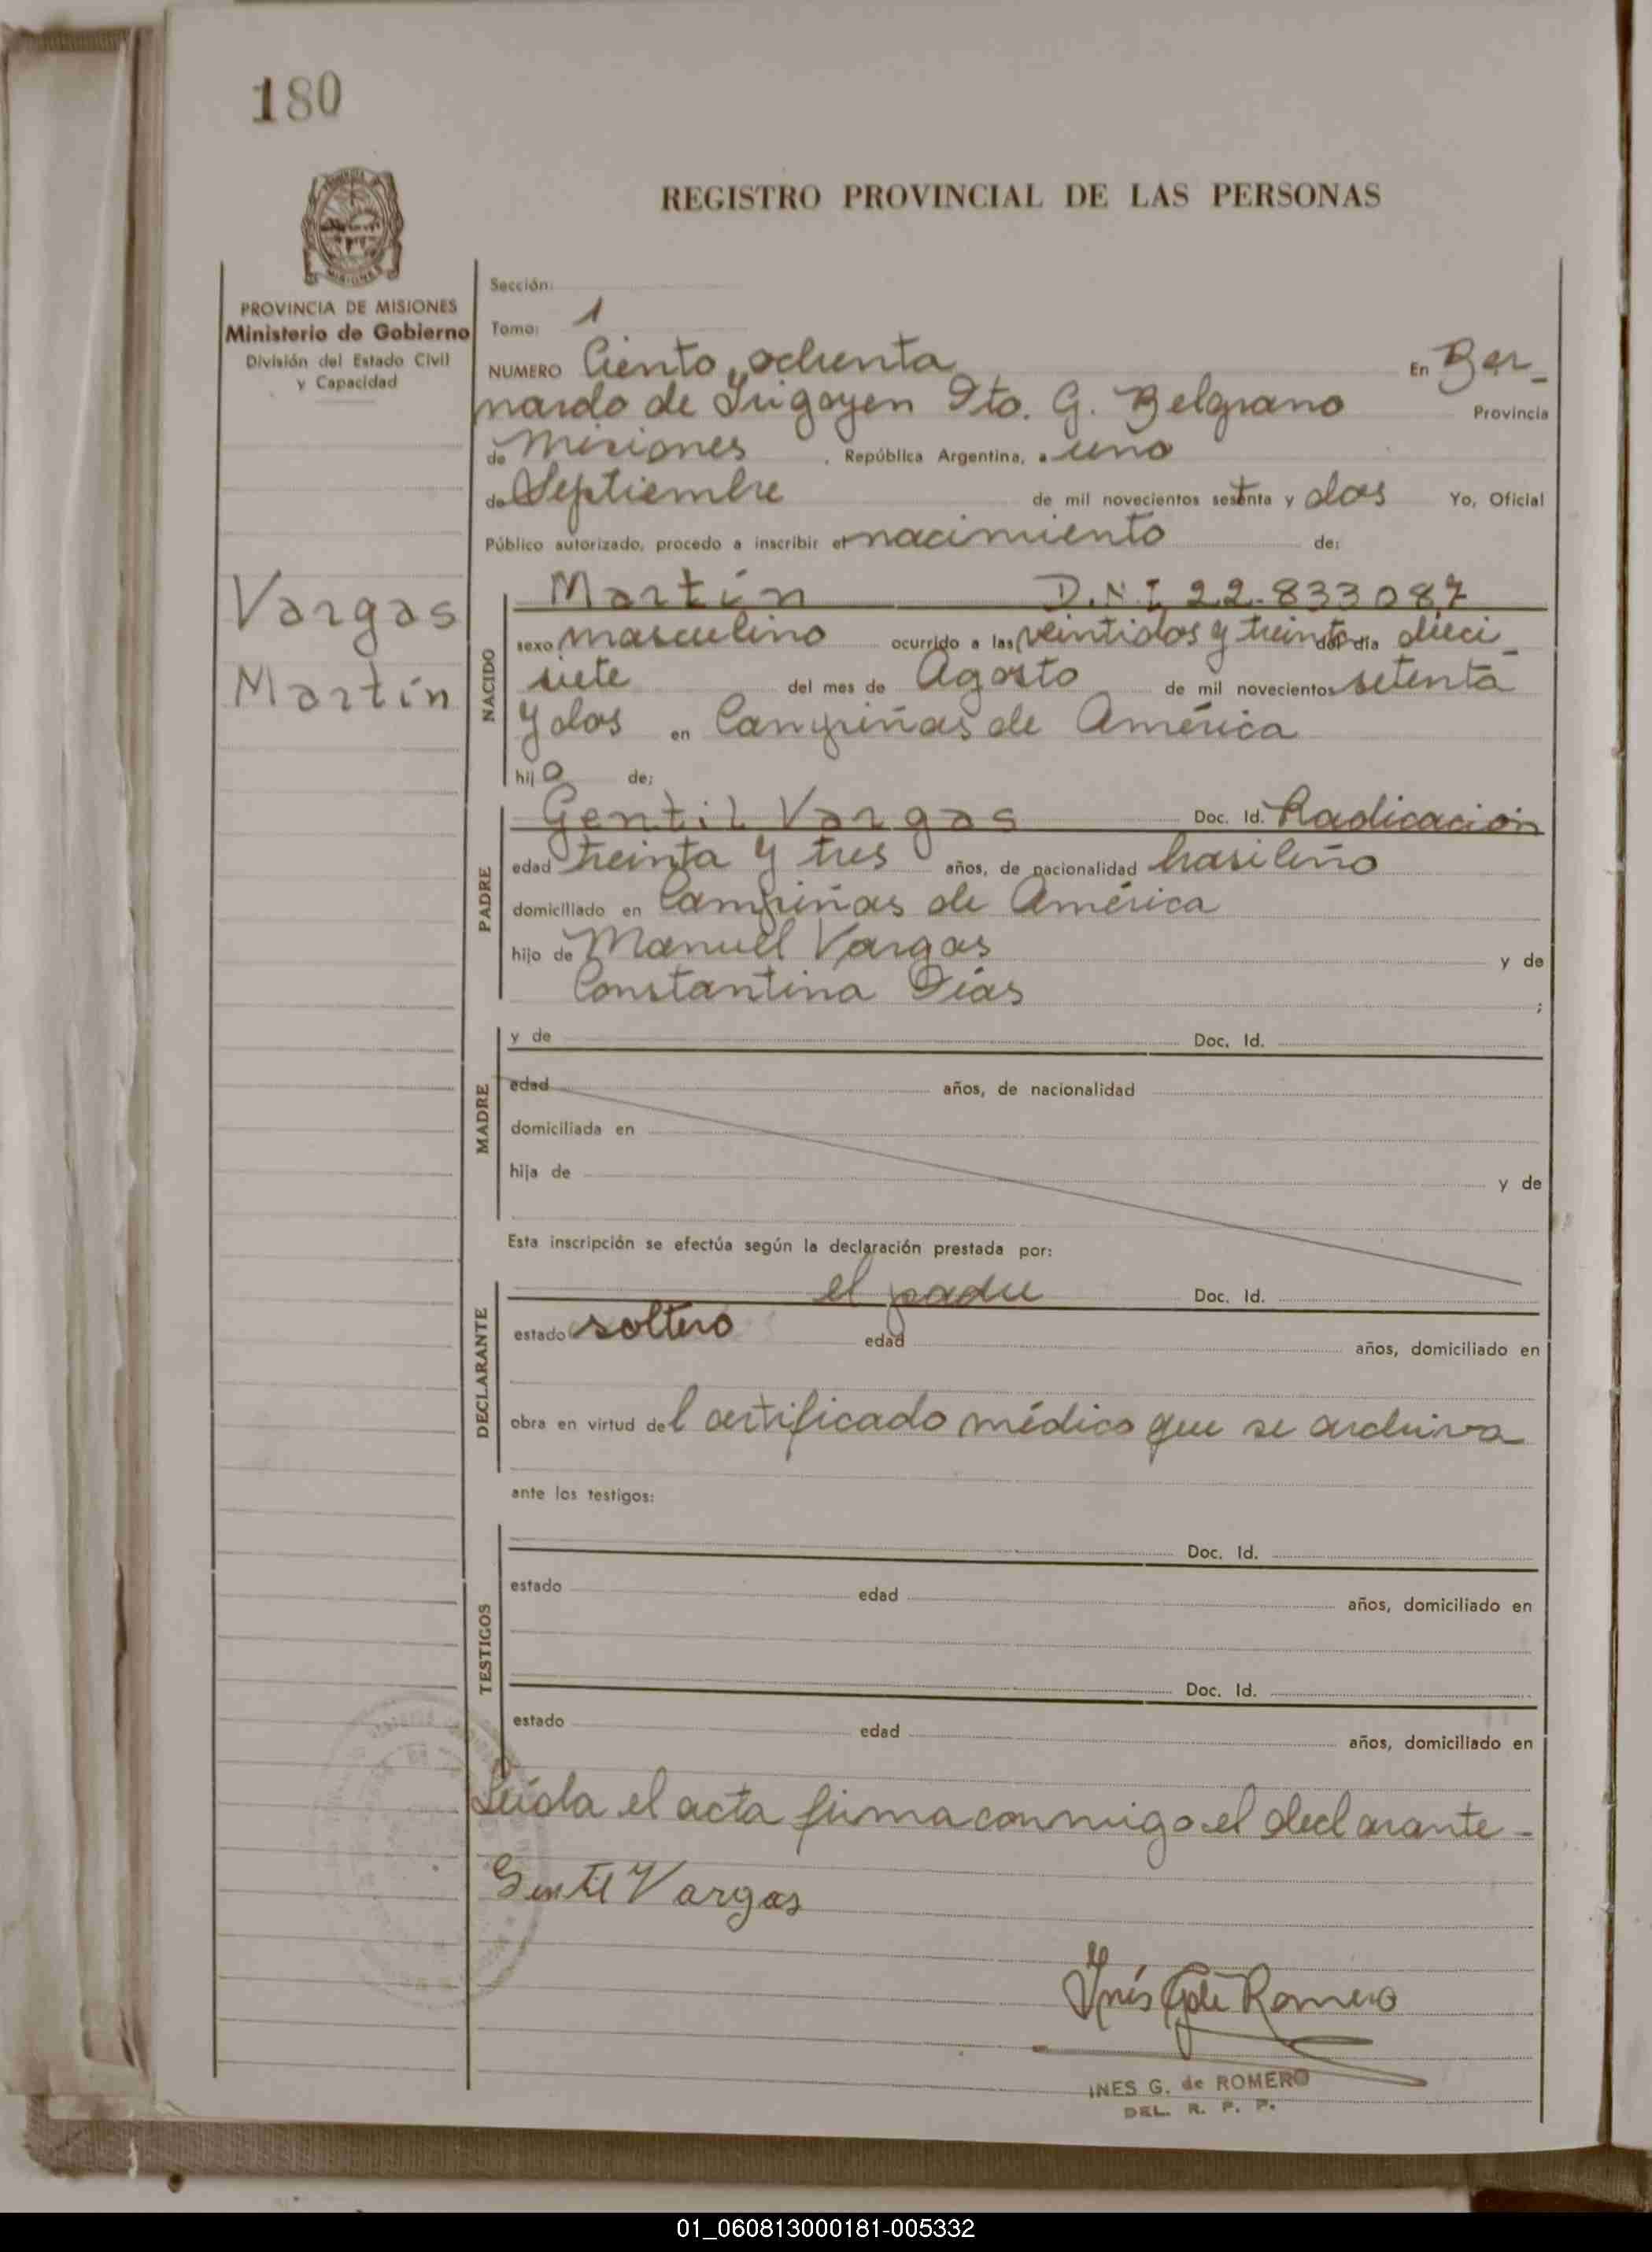 180
REGISTRO PROVINCIAL DE LAS PERSONAS
MISIONES
PROVINCIA DE MISIONES
Ministerio de Gobierno
División del Estado Civil
y Capacidad
Vargas
Martín
Sección:
Tomo: 1
NUMERO Ciento ochenta En Ber-
nardo de Irigoyen Dto. G. Belgrano Provincia
de Misiones , República Argentina, a uno
de Septiembre de mil novecientos setenta y dos Yo, Oficial
Público autorizado, procedo a inscribir el nacimiento de:
NACIDO
Martín D.N.I 22.833087
sexo masculino ocurrido a las veintidos y treinta del día dieci-
siete del mes de Agosto de mil novecientos setenta
y dos en Campiñas de América
hijo de:
PADRE
Gentil Vargas Doc. Id. Radicación
edad treinta y tres años, de nacionalidad brasileño
domiciliado en Campiñas de América
hijo de Manuel Vargas y de
Constantina Dias ;
MADRE
y de Doc. Id.
edad años, de nacionalidad
domiciliada en
hija de y de
Esta inscripción se efectúa según la declaración prestada por:
DECLARANTE
el padre Doc. Id.
estado soltero edad años, domiciliado en
obra en virtud del certificado médico que se archiva
ante los testigos:
TESTIGOS
Doc. Id.
estado edad años, domiciliado en
Doc. Id.
estado edad años, domiciliado en
Leída el acta firma conmigo el declarante-
Gentil Vargas
Inés G de Romero
INES G. de ROMERO
DEL. R. P. P.
01_060813000181-005332